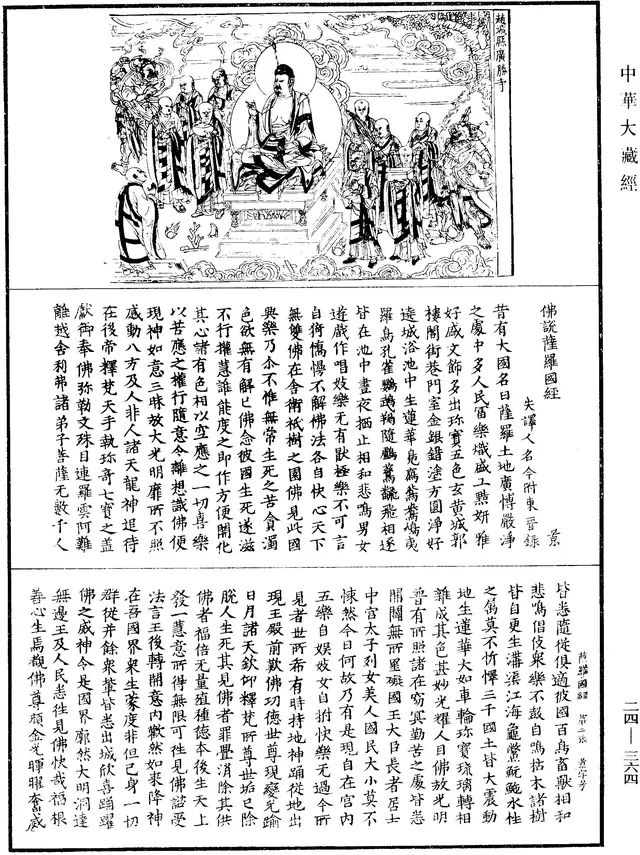 中華大藏經
二四—三六四
趙城縣廣勝寺
佛說薩羅國經
失譯人名今附東晉錄 景
昔有大國名曰薩羅土地廣博嚴淨
之處中多人民富樂熾盛工黠妍雅
好咸文飾多出珍寶五色玄黃城郭
樓閣街巷門室金銀錯塗方圓淨好
遶城浴池中生蓮華鳧鴈鴛鴦
羅烏孔雀鸚鵡鴝隨鸞鷟飛相逐
皆在池中晝夜栖止相和悲鳴男女
遊戲作唱妓樂无有猒極樂不可言
自猗憍慢不解佛法各自快心天下
無雙佛在舍衛祇樹之園佛見此國
與樂乃尒不惟無常生死之苦貪濁
色欲無有解已佛念彼國生死遂滋
不行權慧誰能度之即作方便開化
其心諸有色相以空應之一切喜樂
以苦應之權行隨意令離想識佛便
現神如意三昧放大光明靡所不照
感動八方及人非人諸天龍神追侍
在後帝釋梵天手執珎奇七寶之蓋
獻御奉佛弥勒文殊目連羅雲阿難
離越舍利弗諸弟子菩薩无數千人
薩羅國經 第二張 景字号
皆悉隨從俱適彼國百鳥畜獸相和
悲鳴倡伎衆樂不鼓自鳴枯木諸樹
皆自更生溝渠江海龜鱉魭鮑水性
之屬莫不忻懌三千國土皆大震動
地生蓮華大如車輪珎寶琉璃轉相
雜成其色甚妙光耀人目佛放光明
普有所照諸在窈冥勤苦之處皆悉
開闢無所罣礙國王大臣長者居士
中宮太子列女美人國民大小莫不
悚然今日何故乃有是現自在宮内
五樂自娛妓女自拊快樂无過今所
見者世所希有時持地神踊從地出
現王殿前歎佛功德世尊現變光踰
日月諸天欽仰釋梵所尊世垢已除
脫人生死其見佛者罪舋消除其供
佛者福倍无量殖種德本後生天上
發一慧意所得無限可往見佛諮受
法言王後轉開意内歡然如來降神
在吾國界衆生蒙度非但已身一切
群從并餘衆輩皆悉出城欣喜踊躍
佛之威神令是國界廓然大明洞達
無邊王及人民悉往見佛快哉福根
善心生焉觀佛尊顏金光暉曜奮威